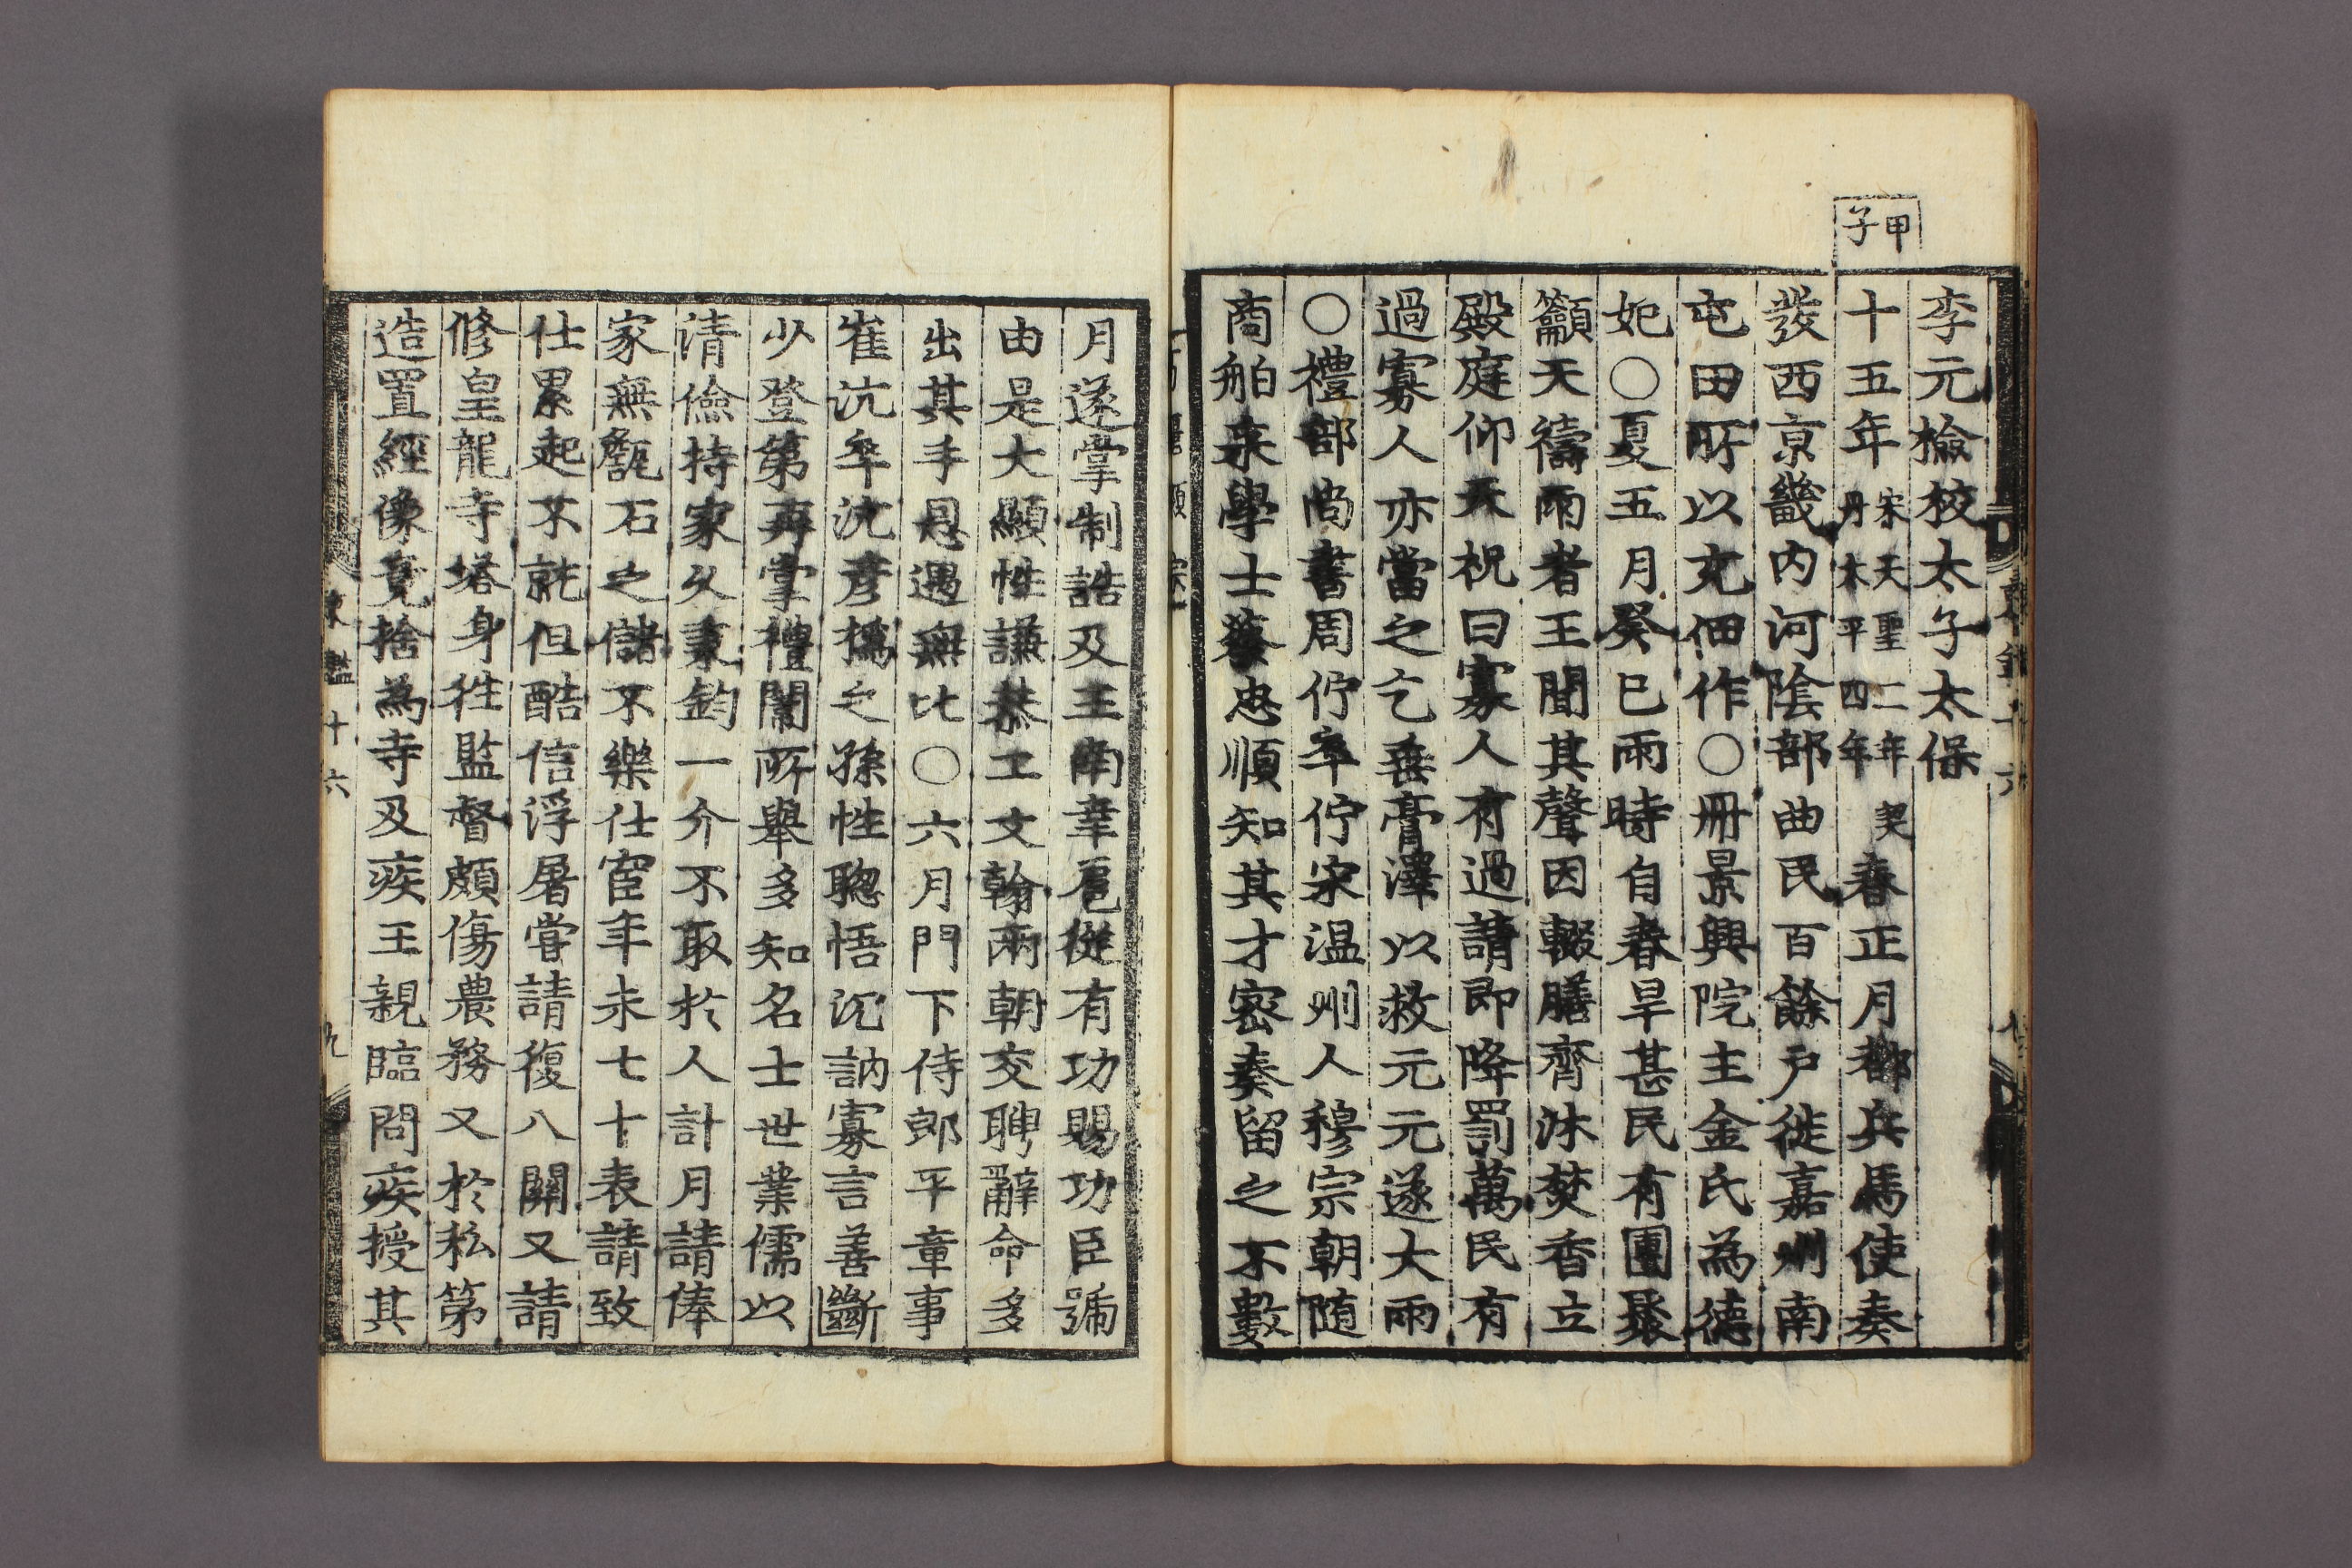 甲子
李元檢校太子太保
十五年宋天聖二年契丹太平四年春正月都兵馬使奏
發西京畿內河陰部曲民百餘戶徙嘉州南
屯田所以充佃作○冊景興院主金氏為德
妃○夏五月癸巳雨時自春旱甚民有團聚
籲天禱雨者王聞其聲因輟膳齊沐焚香立
殿庭仰天祝曰寡人有過請即降罰萬民有
過寡人亦當之乞垂膏澤以救元元遂大雨
○禮部尚書周佇卒佇宋温州人穆宗朝随
商舶来學士蔡忠順知其才密奏留之不數
月遂掌制誥及王南幸扈從有功賜功臣號
由是大顯性謙恭工文翰兩朝交聘辭命多
出其手恩遇無比○六月門下侍郎平章事
崔沆卒沆彥撝之孫性聦悟沉訥寡言善斷
少登第再掌禮闈所舉多知名士世業儒以
清儉持家久秉鈞一介不取於人計月請俸
家無甔石之儲不樂仕宦年未七十表請致
仕累起不就但酷信浮屠甞請復八關又請
修皇龍寺塔身往監督頗傷農務又於私第
造置經像竟捨為寺及疾王親臨問疾授其
東鑑十六
九